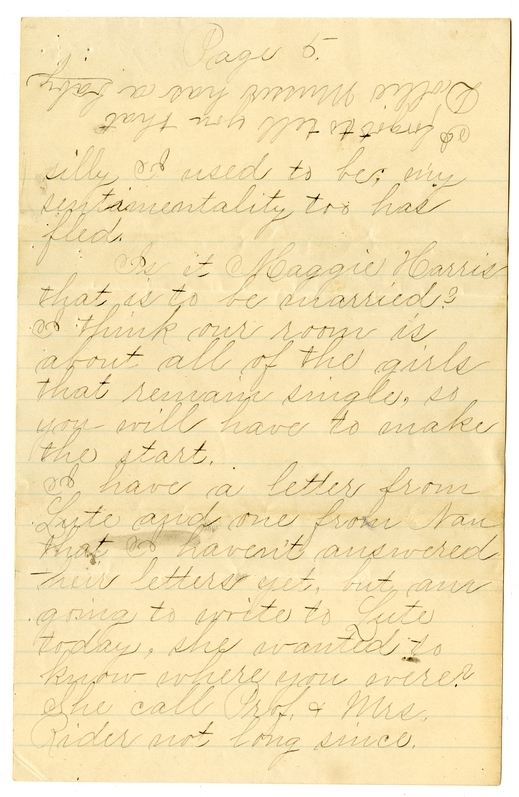 Page 5.
I forgot to tell you that
Dollie Mumus has a baby
silly I used to be; my
sentimentality too has
fled.
Is it Maggie Harris
that is to be married?
I think our room is
about all of the girls
that remain single, so
you will have to make
the start.
I have a letter from
Lute and one from Nan
that I haven't answered
their letters yet, but am
going to write to Lute
today, she wanted to
know where you were?
She call Prof. & Mrs.
Rider not long since.